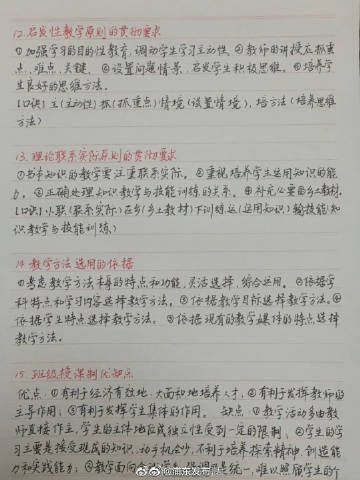 12. 启发性教学原则的贯彻要求
①加强学习的目的性教育,调动学生学习主动性。②教师的讲授应抓重
点、难点、关键。③设置问题情景,启发学生积极思维。④培养学
生良好的思维方法。
【口诀】主(主动性)抓(抓重点)情境(设置情境),培方法(培养思维
方法)
13. 理论联系实际原则的贯彻要求
①书本知识的教学要注重联系实际。②重视培养学生运用知识的能
力。③正确处理知识教学与技能训练的关系。④补充必要的乡土教材。
【口诀】小联(联系实际)在乡(乡土教材)下训练运(运用知识)输技能(知
识教学与技能训练)
14. 教学方法选用的依据
①考虑教学方法本身的特点和功能,灵活选择,综合运用。②依据学
科特点和学习内容选择教学方法。③依据教学目标选择教学方法。④
依据学生特点选择教学方法。⑤依据现有的教学媒体的特点选择
教学方法。
15. 班级授课制优缺点
优点:①有利于经济有效地、大面积地培养人才;②有利于发挥教师的
主导作用;③有利于发挥学生集体的作用。 缺点:①教学活动多由教
师直接作主,学生的主体地位或独立性受到一定的限制;②学生的学
习主要是接受现成的知识,动手机会少,不利于培养探索精神、创造能
力和实践能力;③教学面向全体学生,强调的是统一,难以照顾学生的个
@浦东发布